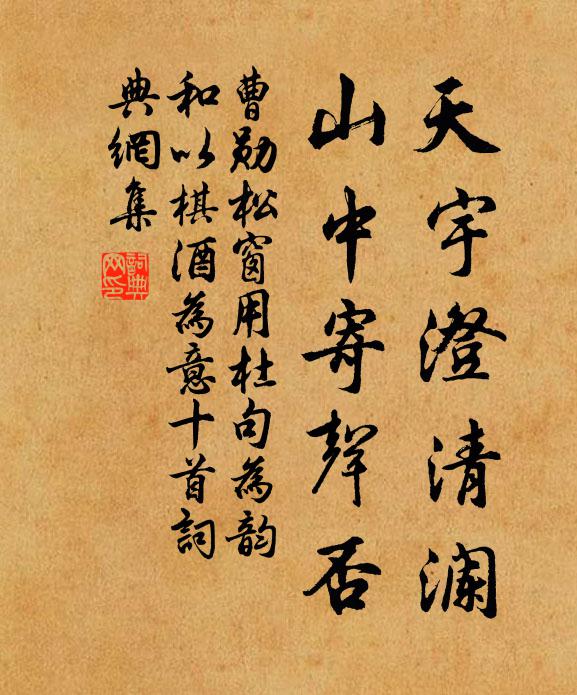 天宇澄清澜
山中寄聲否
曹勋松窗用杜句為韵
和以棋酒為意十首詞
典網集
詞典网印